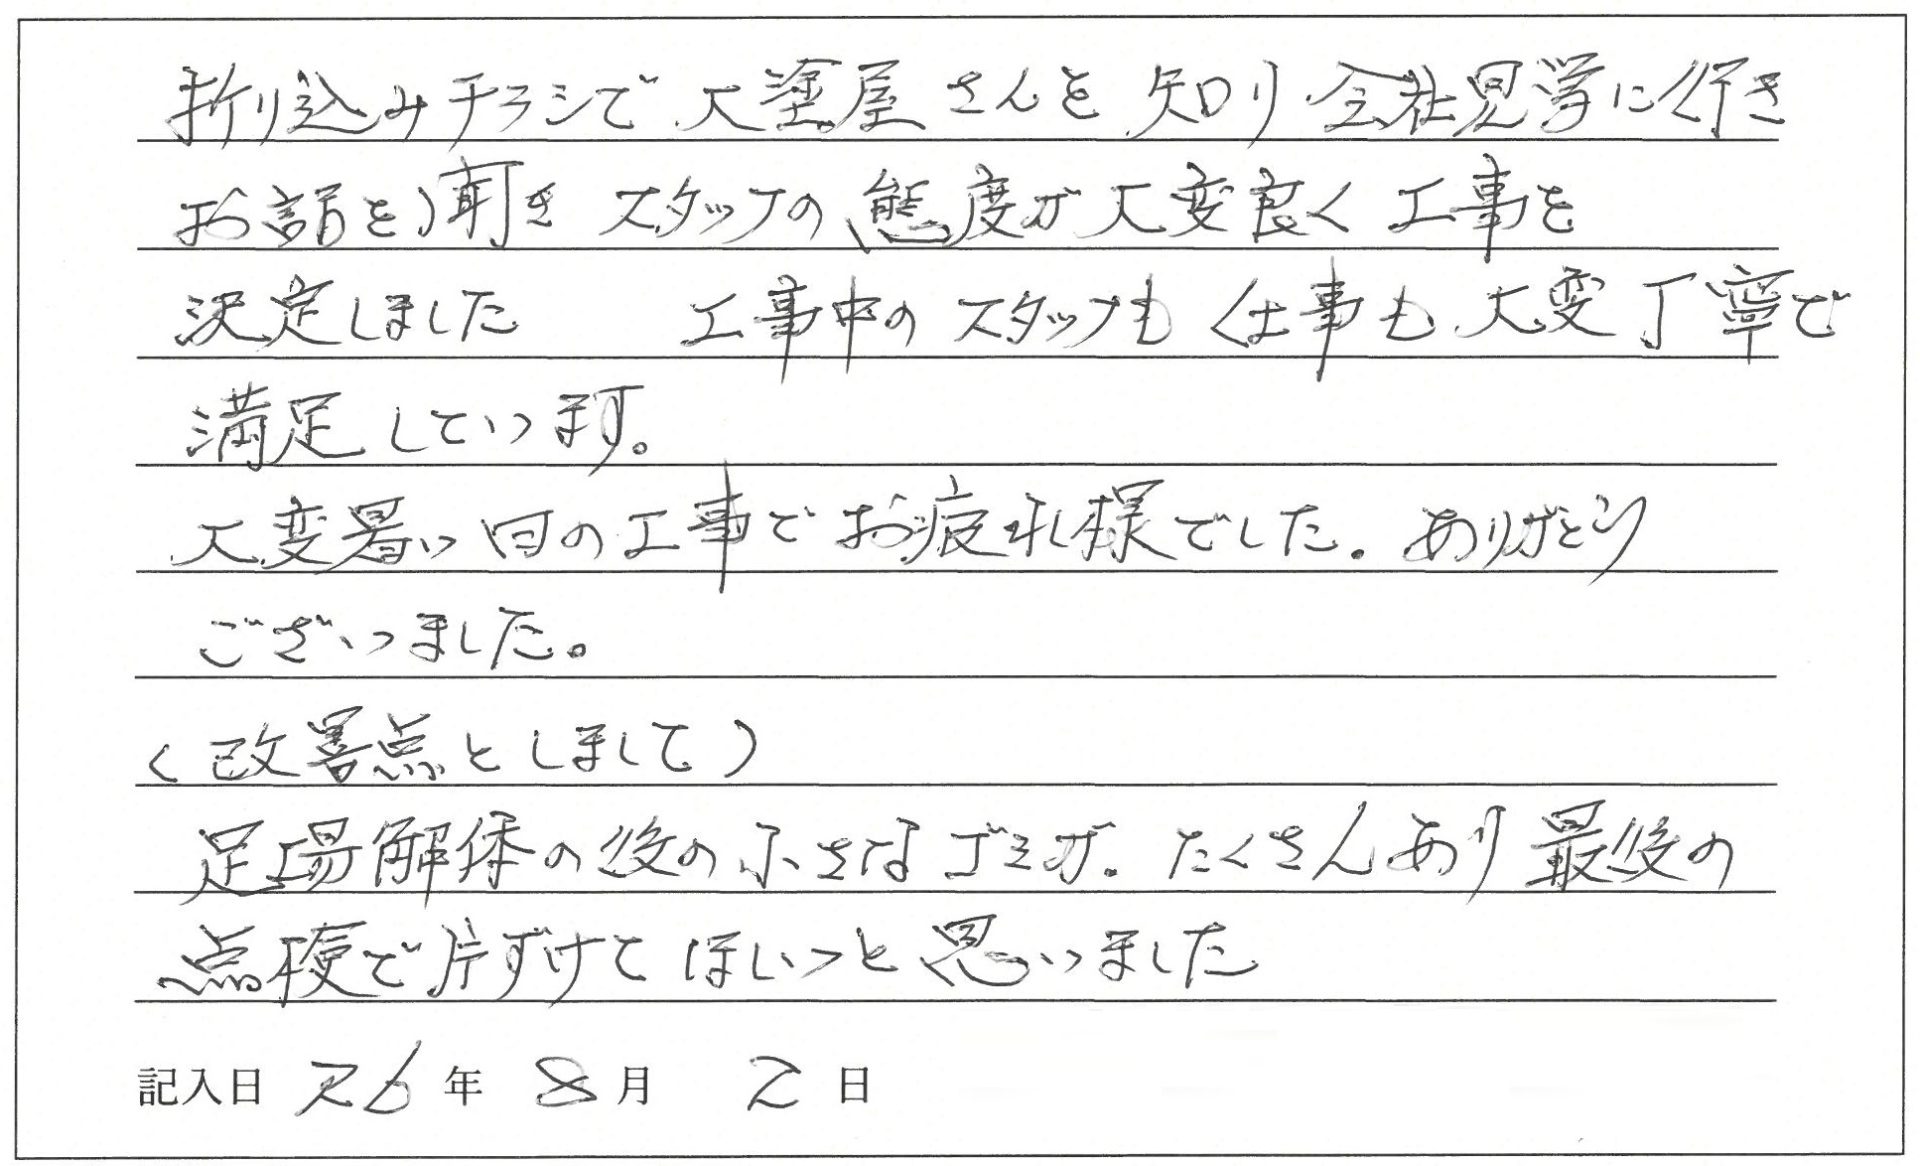 折り込みチラシで大塗屋さんを知り会社見学に行き
お話を聞きスタッフの態度が大変良く工事を
決定しました 工事中のスタッフも仕事も大変丁寧で
満足しています。
大変暑い日の工事でお疲れ様でした。ありがとう
ございました。
(改善点としまして)
足場解体の後の小さなゴミが、たくさんあり最後の
点検で片ずけてほしいと思いました
記入日 R6年 8月 2日